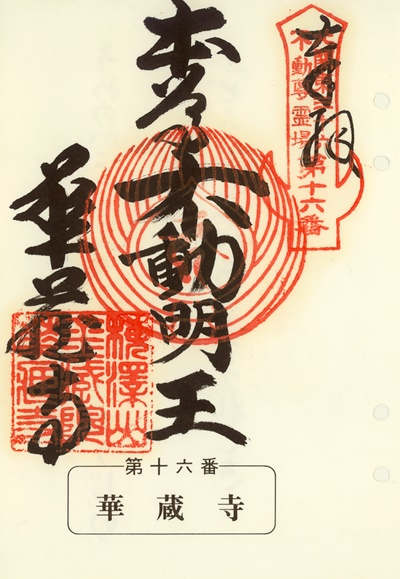 奉拝
不動尊霊場第十六番
本尊不動明王
華蔵寺
第十六番
華蔵寺